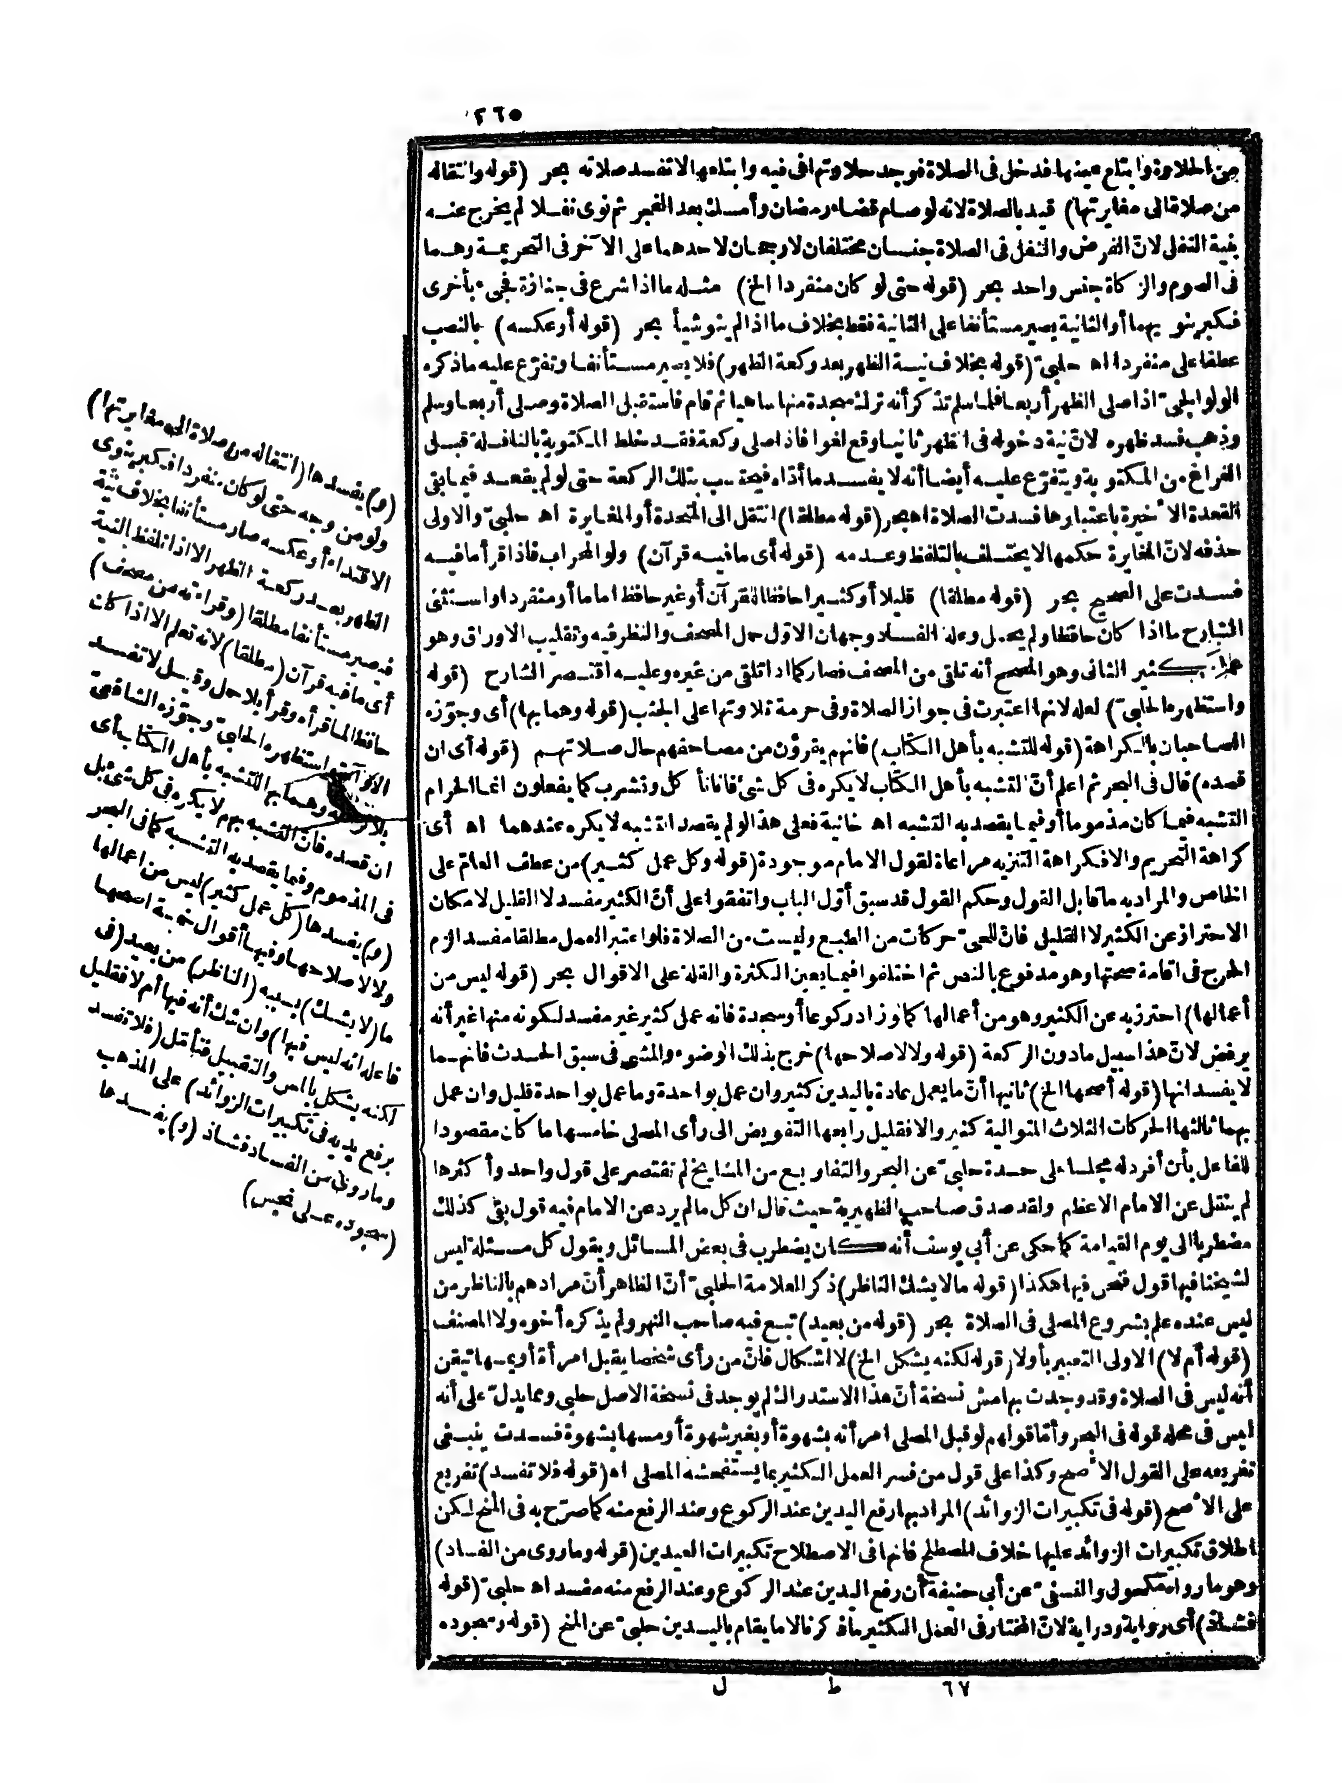 ٢٦٥
من الحلاوة وابتلع عينها فدخل فى الصلاة فوجد حلاوتها فى فيه وابتلعها لا تفسد صلاته بحر (قوله وانتقاله
من صلاة الى مغايرتها) قيد بالصلاة لانه لو صام قضاء رمضان وأمسك بعد الفجر ثم نوى نفلا لم يخرج عنه
بنية النفل لانّ الفرض والنفل فى الصلاة جنسان مختلفان لا رجحان لاحدهما على الآخر فى التحريمة وهما
فى الصوم والزكاة جنس واحد بحر (قوله حتى لو كان منفردا الخ) مثله ما اذا شرع فى جنازة فجىء بأخرى
فكبر ينوبهما أو الثانية يصير مستأنفا على الثانية فقط بخلاف ما اذا لم ينو شيأ بحر (قوله أو عكسه) بالنصب
عطفا على منفردا اه حلبىّ (قوله بخلاف نية الظهر بعد ركعة الظهر) فلا يصير مستأنفا وتفرّع عليه ما ذكره
الولوالجىّ اذا صلى الظهر أربعا فلما سلم تذكر أنه ترك سجدة منها ساهيا ثم قام فاستقبل الصلاة وصلى أربعا وسلم
وذهب فسد ظهره لانّ نية دخوله فى الظهر ثانيا وقع لغوا فاذا صلى ركعة فقد خلط المكتوبة بالنافلة قبل
الفراغ من المكتوبة ويتفرّع عليه أيضا أنه لا يفسد ما أدّاه فيحتسب بتلك الركعة حتى لو لم يقعد فيما بقى
القعدة الاخيرة باعتبارها فسدت الصلاة اه بحر (قوله مطلقا) انتقل الى المتحدة أو المغايرة اه حلبىّ والاولى
حذفه لانّ المغايرة حكمها لا يختلف بالتلفظ وعدمه (قوله أى ما فيه قرآن) ولو المحراب فاذا قرأ ما فيه
فسدت على الصحيح بحر (قوله مطلقا) قليلا أو كثيرا حافظا للقرآن أو غير حافظ اماما أو منفردا واستثنى
الشارح ما اذا كان حافظا ولم يحمل وعلة الفساد وجهان الاوّل حمل المصحف والنظر فيه وتقليب الاوراق وهو
عمل كثير الثانى وهو الصحيح أنه تلقى من المصحف فصار كما اذا تلقى من غيره وعليه اقتصر الشارح (قوله
واستظهره الحلبىّ) لعله لانها اعتبرت فى جواز الصلاة وفى حرمة تلاوتها على الجنب (قوله وهما بها) أى وجوّزه
الصاحبان بالكراهة (قوله للتشبه بأهل الكتاب) فانهم يقرؤن من مصاحفهم حال صلاتهم (قوله أى ان
قصده) قال فى البحر ثم اعلم أنّ التشبه بأهل الكتاب لا يكره فى كل شئ فانا نأكل ونشرب كما يفعلون انما الحرام
التشبه فيما كان مذموما أو فيما يقصد به التشبه اه خانية فعلى هذا لو لم يقصد التشبه لا يكره عندهما اه أى
كراهة التحريم والا فكراهة التنزيه مراعاة لقول الامام موجودة (قوله وكل عمل كثير) من عطف العام على
الخاص والمراد به ما قابل القول وحكم القول قد سبق أوّل الباب واتفقوا على أنّ الكثير مفسد لا القليل لامكان
الاحتراز عن الكثير لا القليل فانّ للحىّ حركات من الطبع وليست من الصلاة فلو اعتبر العمل مطلقا مفسدا لزم
الحرج فى اقامة صحتها وهو مدفوع بالنص ثم اختلفوا فيما يعين الكثرة والقلة على الاقوال بحر (قوله ليس من
أعمالها) احترز به عن الكثير وهو من أعمالها كما لو زاد ركوعا أو سجدة فانه عمل كثير غير مفسد لكونه منها غير أنه
يرفض لانّ هذا سبيل ما دون الركعة (قوله ولا لاصلاحها) خرج بذلك الوضوء والمشى فى سبق الحدث فانهما
لا يفسدانها (قوله أصحها الخ) ثانيها أنّ ما يعمل عادة باليدين كثير وان عمل بواحدة وما عمل بواحدة قليل وان عمل
بهما ثالثها الحركات الثلاث المتوالية كثير والا فقليل رابعها التفويض الى رأى المصلى خامسها ما كان مقصودا
للفاعل بأن أفرد له مجلسا على حدة حلبىّ عن البحر والتفاريع من المشايخ لم تقتصر على قول واحد وأكثرها
لم ينقل عن الامام الاعظم ولقد صدق صاحب الظهيرية حيث قال ان كل ما لم يرد عن الامام فيه قول بقى كذلك
مضطربا الى يوم القيامة كما حكى عن أبى يوسف أنه كان يضطرب فى بعض المسائل ويقول كل مسئلة ليس
لشيخنا فيها قول فنحن فيها هكذا (قوله ما لا يشك الناظر) ذكر العلامة الحلبىّ أنّ الظاهر أنّ مرادهم بالناظر من
ليس عنده علم بشروع المصلى فى الصلاة بحر (قوله من بعيد) تبع فيه صاحب النهر ولم يذكره أخوه ولا المصنف
(قوله أم لا) الاولى التعبير بأو لا (قوله لكنه يشكل الخ) لا اشكال فانّ من رأى شخصا يقبل امرأة أو يمسها تيقن
أنه ليس فى الصلاة وقد وجدت بهامش نسخة أنّ هذا الاستدراك لم يوجد فى نسخة الاصل حلبى ومما يدلّ على أنه
ليس فى محله قوله فى البحر وأمّا قولهم لو قبل المصلى امرأته بشهوة أو بغير شهوة أو مسها بشهوة فسدت ينبغى
تفريعه على القول الاصح وكذا على قول من فسر العمل الكثير بما يستفحشه المصلى اه (قوله فلا تفسد) تفريع
على الاصح (قوله فى تكبيرات الزوائد) المراد بها رفع اليدين عند الركوع وعند الرفع منه كما صرّح به فى المنح لكن
اطلاق تكبيرات الزوائد عليها خلاف المصطلح فانها فى الاصطلاح تكبيرات العيدين (قوله وما روى من الفساد)
وهو ما رواه مكحول والنسفىّ عن أبى حنيفة أن رفع اليدين عند الركوع وعند الرفع منه مفسد اه حلبىّ (قوله
فشاذ) أى رواية ودراية لانّ المختار فى العمل الكثير ما ذكرنا لا ما يقام باليدين حلبىّ عن المنح (قوله وسجوده
(و) يفسدها (انتقاله من صلاة الى مغايرتها)
ولو من وجه حتى لو كان منفردا فكبر ينوى
الاقتداء أو عكسه صار مستأنفا بخلاف نية
الظهر بعد ركعة الظهر الا اذا تلفظ النية
فيصير مستأنفا مطلقا (وقراءته من مصحف)
أى ما فيه قرآن (مطلقا) لانه تعلم الا اذا كان
حافظا لما قرأه وقرأ بلا حمل وقيل لا تفسد
الا بآية استظهره الحلبىّ وجوّزه الشافعىّ
بلا كراهة وهما بها للتشبه بأهل الكتاب أى
ان قصده فانّ التشبه بهم لا يكره فى كل شئ بل
فى المذموم وفيما يقصد به التشبه كما فى البحر
(و) يفسدها (كل عمل كثير) ليس من اعمالها
ولا لاصلاحها وفيها أقوال خمسة اصحها
ما (لا يشك) بسببه (الناظر) من بعيد (فى
فاعله انه ليس فيها) وان شك أنه فيها أم لا فقليل
لكنه يشكل بالمس والتقبيل فتأمّل (فلا تفسد
برفع يديه فى تكبيرات الزوائد) على المذهب
وما روى من الفساد فشاذ (و) يفسدها
(سجوده على نجس)
٦٧ ط ل